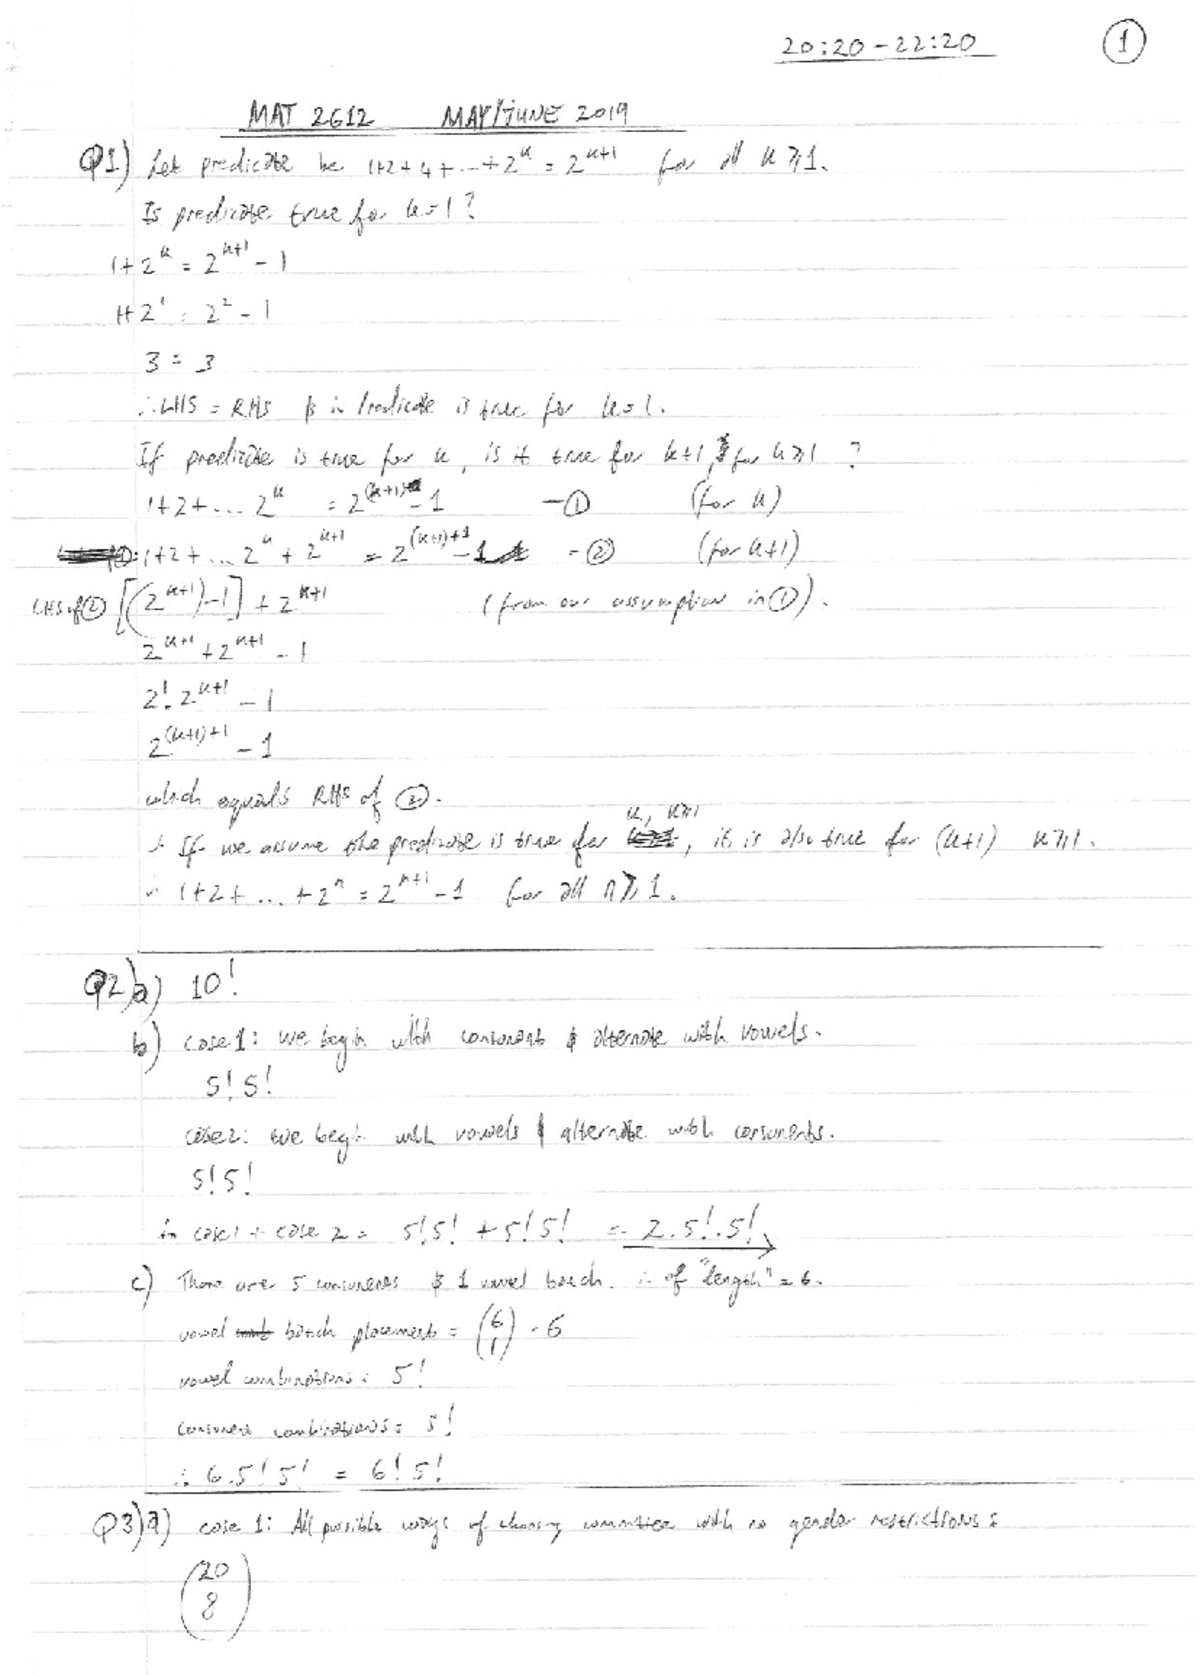 20:20 - 22:20 ①
MAT 2612 MAY/JUNE 2019
Q1) Let predicate be 1+2+4+...+2^k = 2^(k+1) for all k ≥ 1.
Is predicate true for k=1?
1+2^k = 2^(k+1) - 1
1+2^1 = 2^2 - 1
3 = 3
∴ LHS = RHS & ∴ Predicate is true for k=1.
If predicate is true for k, is it true for k+1, for k≥1 ?
1+2+... 2^k = 2^(k+1) - 1 - ① (for k)
1+2+... 2^k + 2^(k+1) = 2^((k+1)+1) - 1 - ② (for k+1)
LHS of ② [(2^(k+1)) - 1] + 2^(k+1) (from our assumption in ①).
2^(k+1) + 2^(k+1) - 1
2^1. 2^(k+1) - 1
2^((k+1)+1) - 1
which equals RHS of ②.
k, k≥1
∴ If we assume the predicate is true for , it is also true for (k+1) k≥1.
∴ 1+2+ ... +2^n = 2^(n+1) - 1 for all n ≥ 1.
Q2) a) 10!
b) case 1: we begin with consonants & alternate with vowels.
5! 5!
case 2: we begin with vowels & alternate with consonents.
5! 5!
∴ case 1 + case 2 = 5! 5! + 5! 5! = 2.5!.5!
c) There are 5 consonents & 1 vowel batch. ∴ of "length" = 6.
vowel batch placements = (6 1) = 6
vowel combinations = 5!
consonent combinations = 5!
∴ 6.5! 5! = 6! 5!
Q3) a) case 1: All possible ways of choosing committee with no gender restrictions:
(20
8)